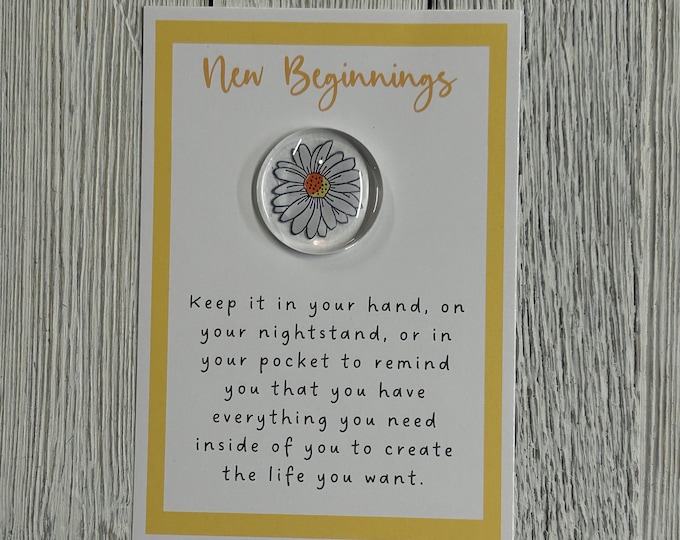 New Beginnings
Keep it in your hand, on
your nightstand, or in
your pocket to remind
you that you have
everything you need
inside of you to create
the life you want.